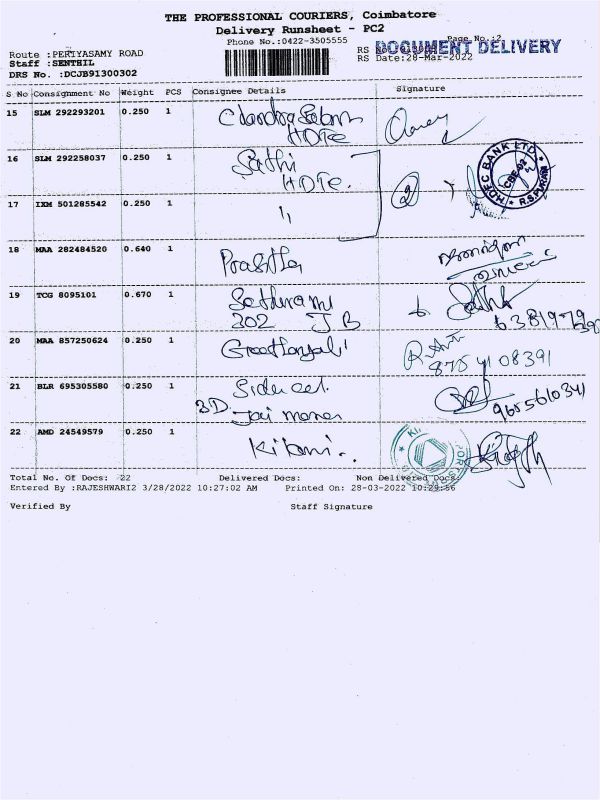 THE PROFESSIONAL COURIERS, Coimbatore
Delivery Runsheet - PC2
Phone No.:0422-3505555
Page No.:2
DOCUMENT DELIVERY
Route :PERIYASAMY ROAD
RS Date:28-Mar-2022
Staff :SENTHIL
DRS No. :DCJB91300302
S No Consignment No Weight PCS Consignee Details Signature
15 SLM 292293201 0.250 1
HDFC
16 SLM 292258037 0.250 1 Sathi
HDFC.
2
HDFC BANK LTD. CBE-02 R.S.PURAM
17 IXM 501285542 0.250 1 "
18 MAA 282484520 0.640 1 Prasitha
19 TCG 8095101 0.670 1
302 J B
20 MAA 857250624 0.250 1
875 41 08391
21 BLR 695305580 0.250 1
3D
9655610341
22 AMD 24549579 0.250 1
Total No. Of Docs: 22 Delivered Docs: Non Delivered Docs:
Entered By :RAJESHWARI2 3/28/2022 10:27:02 AM Printed On: 28-03-2022 10:29:56
Verified By Staff Signature